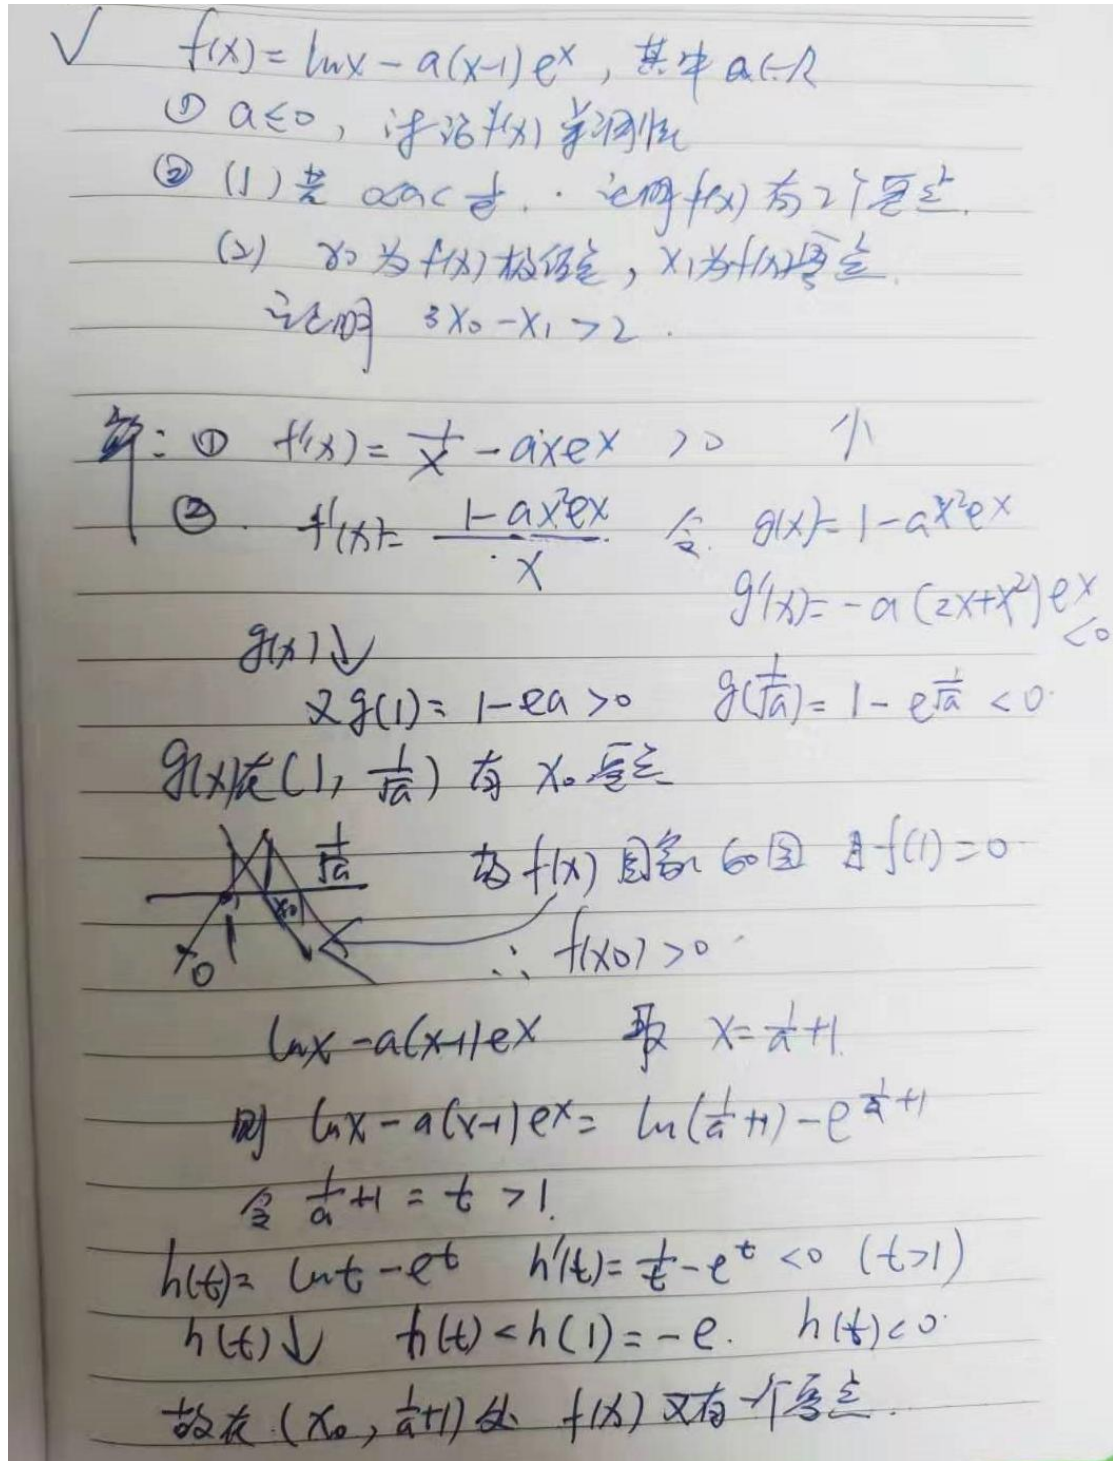 √ f(x)=lnx-a(x-1)e^x，其中a∈R
① a≤0，讨论f(x)单调性
② (1) 若 0<a<1/e . 证明f(x)有2个零点.
(2) x₀为f(x)极值点，x₁为f(x)零点.
证明 3x₀-x₁>2 .
解：① f'(x)=1/x-axe^x >0 ↑
② . f'(x)=(1-ax²e^x)/x 令. g(x)=1-ax²e^x
g'(x)=-a(2x+x²)e^x <0
g(x)↓
又g(1)=1-ea>0 g(1/√a)=1-e^(1/√a)<0.
g(x)在(1, 1/√a) 有 x₀零点
1/√a 故f(x)图象如图 且f(1)=0
x₀
1
∴ f(x₀)>0
lnx-a(x-1)e^x 取 x=1/a+1.
则 lnx-a(x-1)e^x= ln(1/a+1)-e^(1/a+1)
令 1/a+1=t>1.
h(t)=lnt-e^t h'(t)=1/t-e^t<0 (t>1)
h(t)↓ h(t)<h(1)=-e. h(t)<0.
故在(x₀, 1/a+1)处 f(x)又有一个零点.